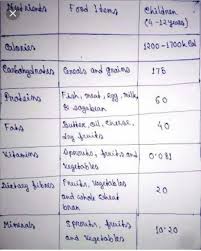 Nutrients Food Items Children
(4-12 years)
Calories 1200-1700k.Cal
Carbohydrates Cereals and grains 175
Proteins Fish, meat, egg, milk, 60
& soyabean
Fats Butter, oil, cheese, 40
dry fruits
Vitamins Sprouts, fruits and 0.081
vegetables
Dietary fibres Fruits, Vegetables 20
and whole wheat
bran
Minerals Sprouts, fruits 10.20
and vegetables